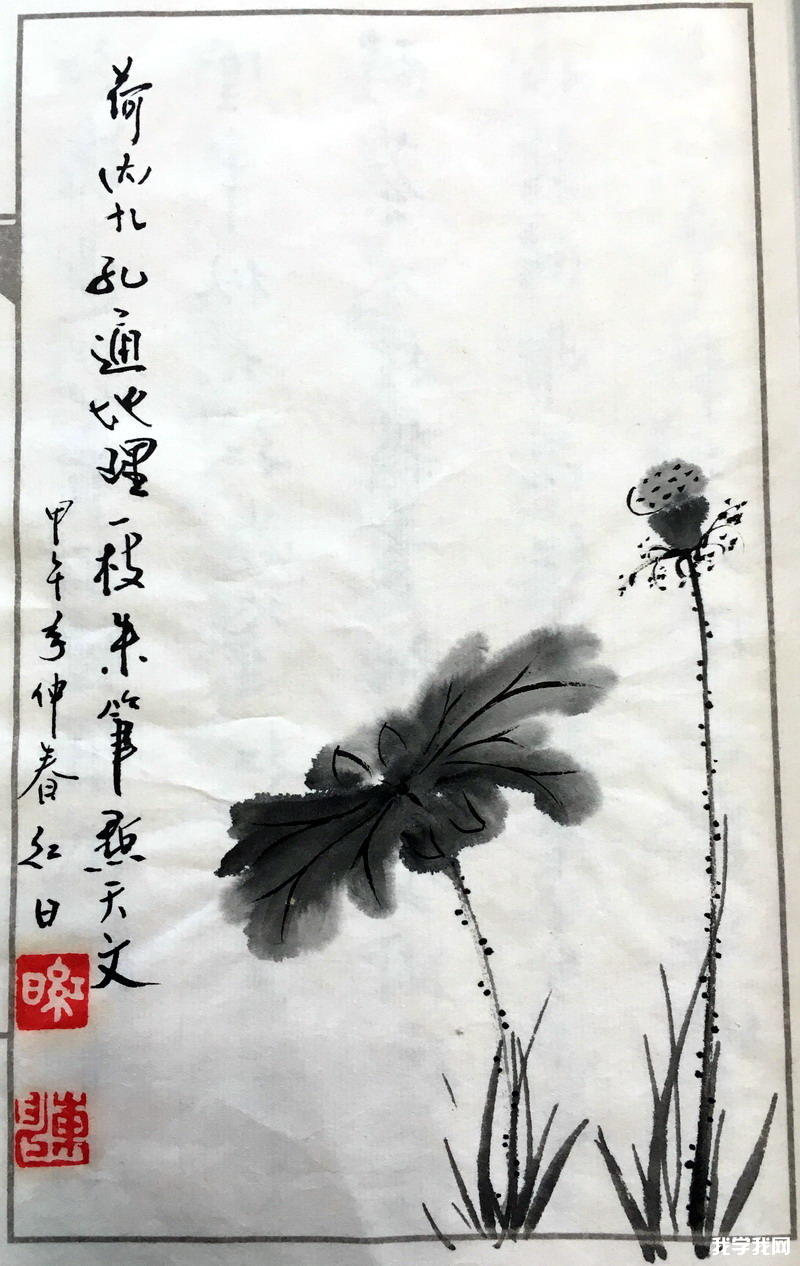 荷内九孔通地理一枝朱筆點天文
甲午年仲春红日
紅日
我学我网